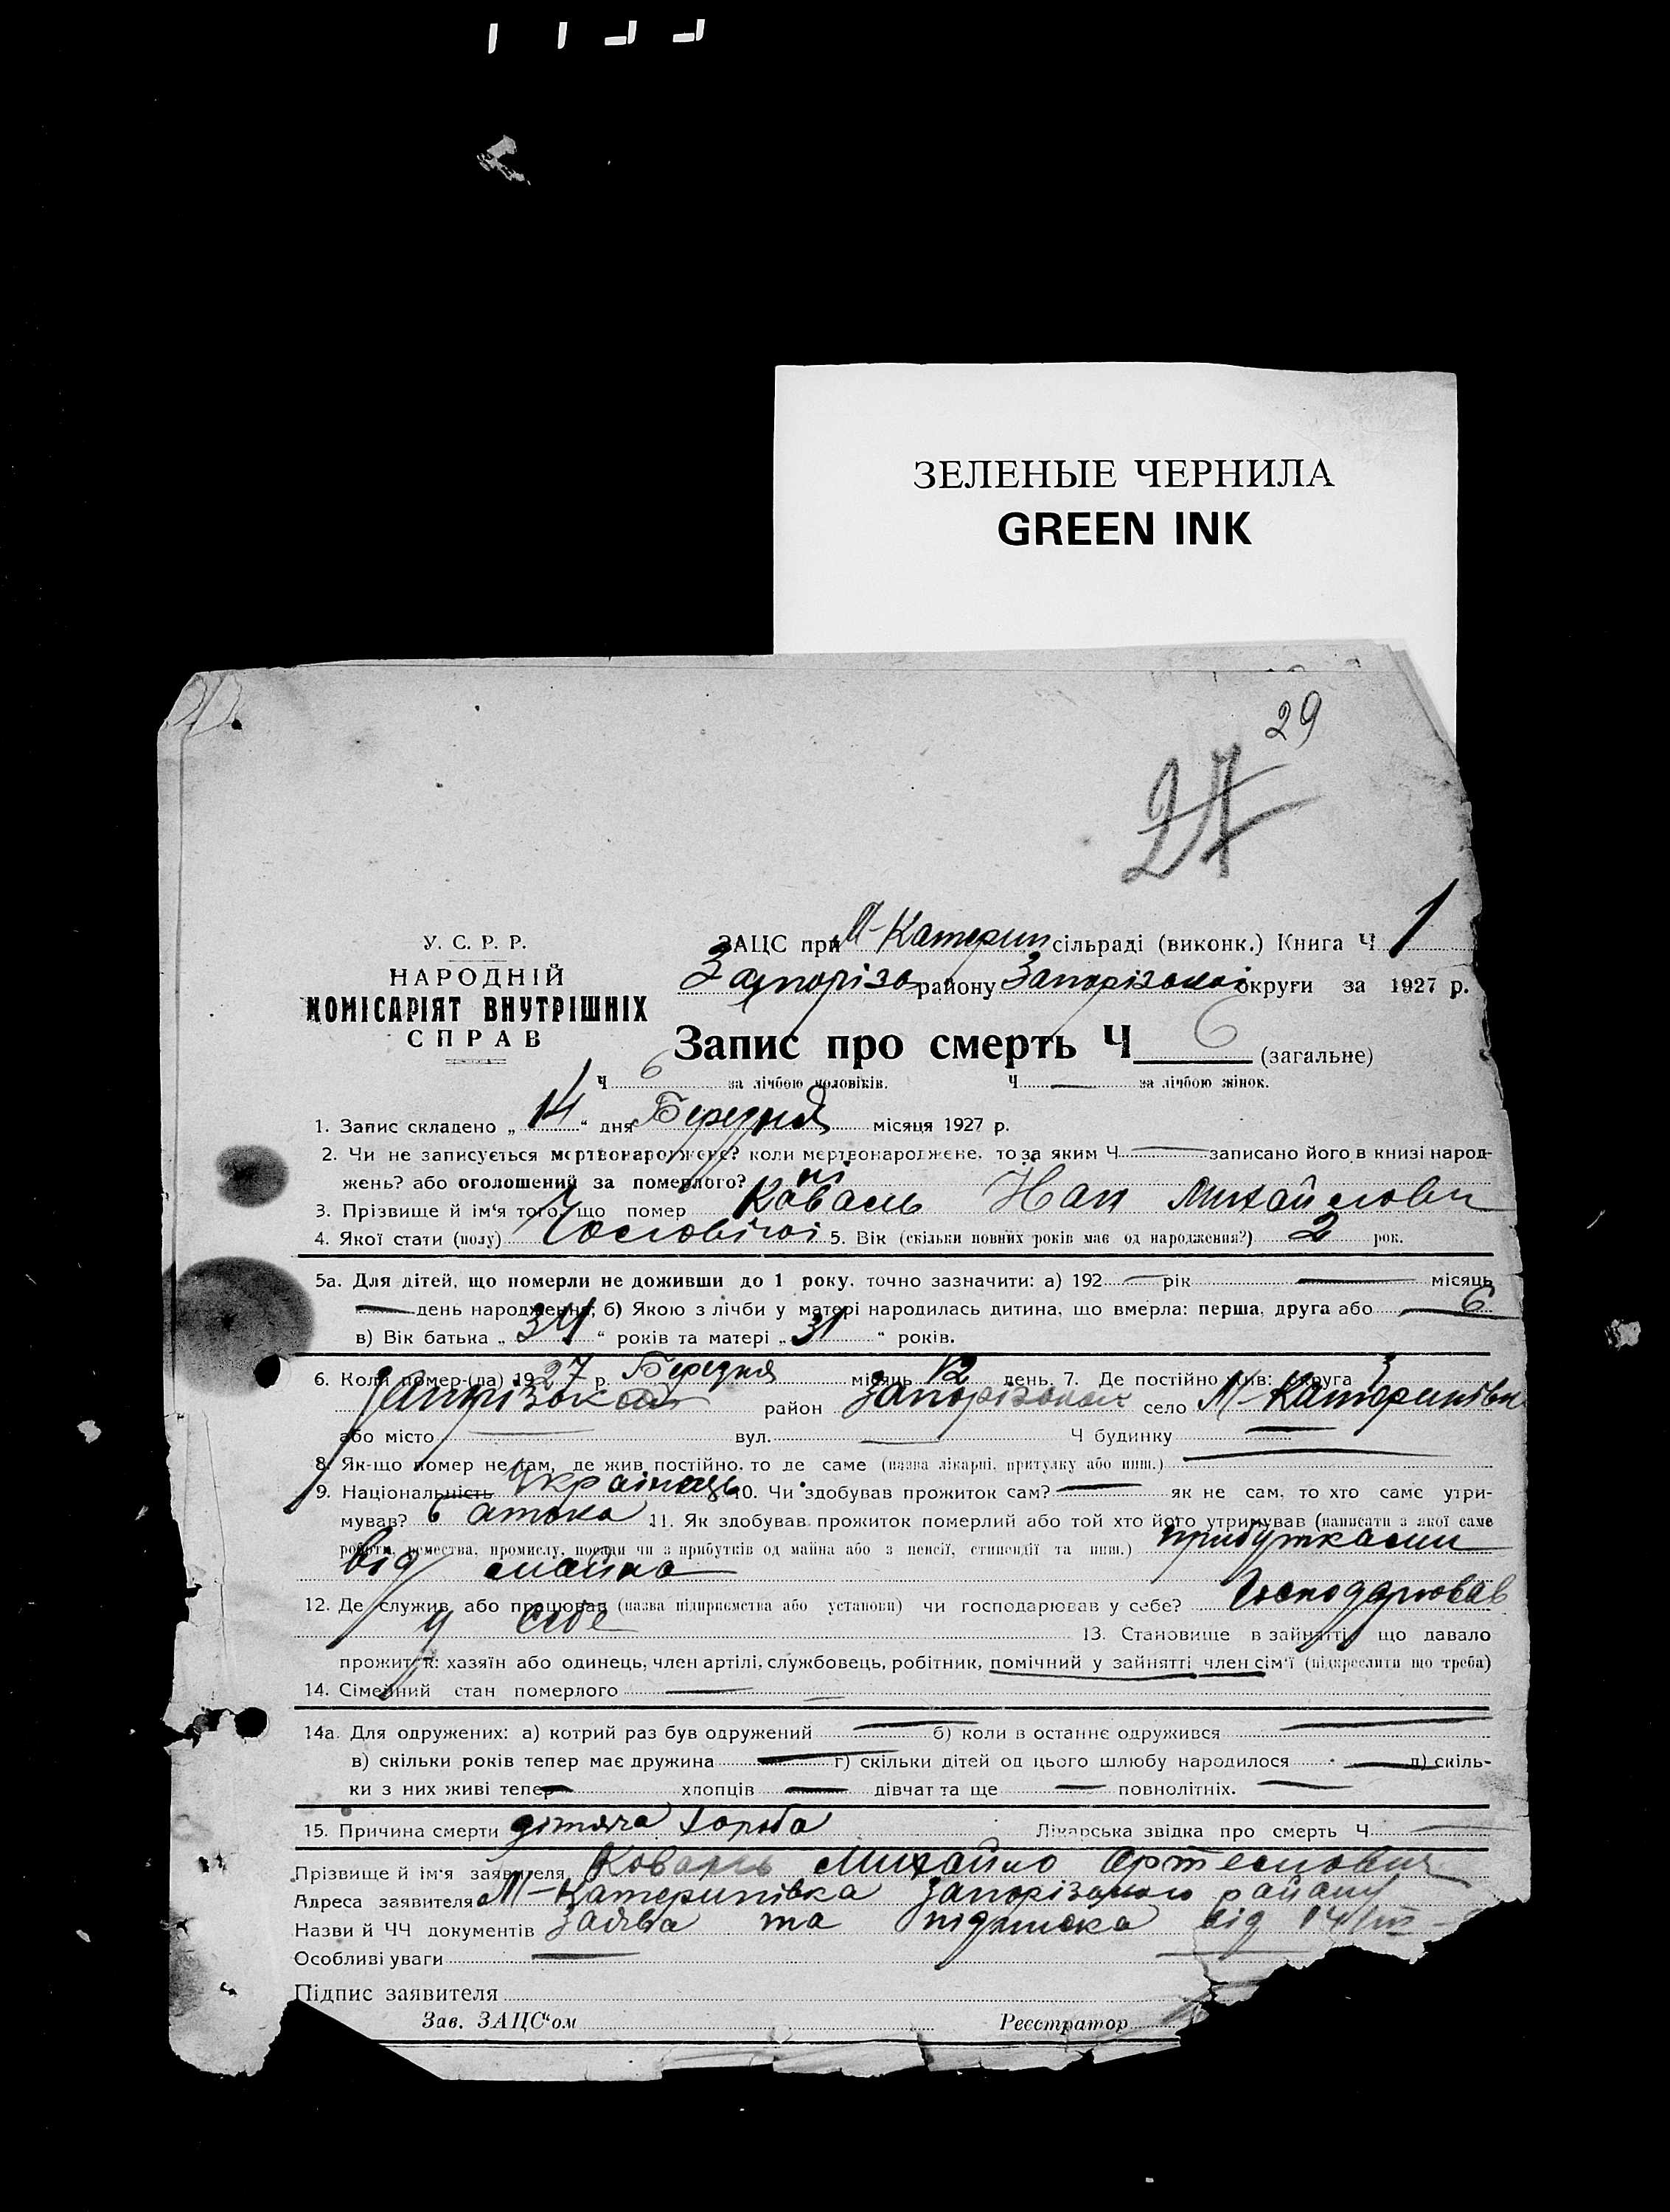 ЗЕЛЕНЫЕ ЧЕРНИЛА
GREEN INK
29
27
У. С. Р. Р.
НАРОДНІЙ
КОМІСАРІЯТ ВНУТРІШНІХ
СПРАВ
ЗАЦС при М-Катерин сільраді (виконк.) Книга Ч 1
Запорізь району Запорізької округи за 1927 р.
Запис про смерть Ч 6 (загальне)
Ч 6 за лічбою чоловіків. Ч — за лічбою жінок.
1. Запис складено „ 14 “ дня Березня місяця 1927 р.
2. Чи не записується мертвонароджене? коли мертвонароджене, то за яким Ч — записано його в книзі народ-
жень? або оголошений за померлого? ні
3. Прізвище й ім'я того, що помер Коваль Михайлович
4. Якої стати (полу) Чоловічої 5. Вік (скільки повних років має од народження?) 2 рок.
5а. Для дітей, що померли не доживши до 1 року, точно зазначити: а) 192 — рік — місяць
— день народження; б) Якою з лічби у матері народилась дитина, що вмерла: перша, друга або 6
в) Вік батька „ 34 “ років та матері „ 31 “ років.
6. Коли помер-(ла) 1927 р. Березня місяць 12 день. 7. Де постійно жив: округа
Запорізька район Запорізький село М-Катеринівка
або місто — вул. — Ч будинку —
8. Як-що помер не там, де жив постійно, то де саме (назва лікарні, притулку або инш.) —
9. Національність Українець 10. Чи здобував прожиток сам? — як не сам, то хто саме утри-
мував? батько 11. Як здобував прожиток померлий або той хто його утримував (написати з якої саме
роботи, ремества, промислу, посади чи з прибутків од майна або з пенсії, стипендії та инш.) прибутками
від майна
12. Де служив або працював (назва підприємства або установи) чи господарював у себе? Господарював
у себе 13. Становище в зайнятті, що давало
прожиток: хазяїн або одинець, член артілі, службовець, робітник, помічний у зайнятті член сім'ї (підкреслити що треба)
14. Сімейний стан померлого —
14а. Для одружених: а) котрий раз був одружений — б) коли в останнє одружився —
в) скільки років тепер має дружина — г) скільки дітей од цього шлюбу народилося — д) скіль-
ки з них живі тепер — хлопців — дівчат та ще — повнолітніх. —
15. Причина смерти дітяча хороба Лікарська звідка про смерть Ч —
Прізвище й ім'я заявителя Коваль Михайло Артемович
Адреса заявителя М-Катеринівка Запорізького району
Назви й ЧЧ документів Заява та підписка від 14/III
Особливі уваги —
Підпис заявителя
Зав. ЗАЦС“ом Реєстратор